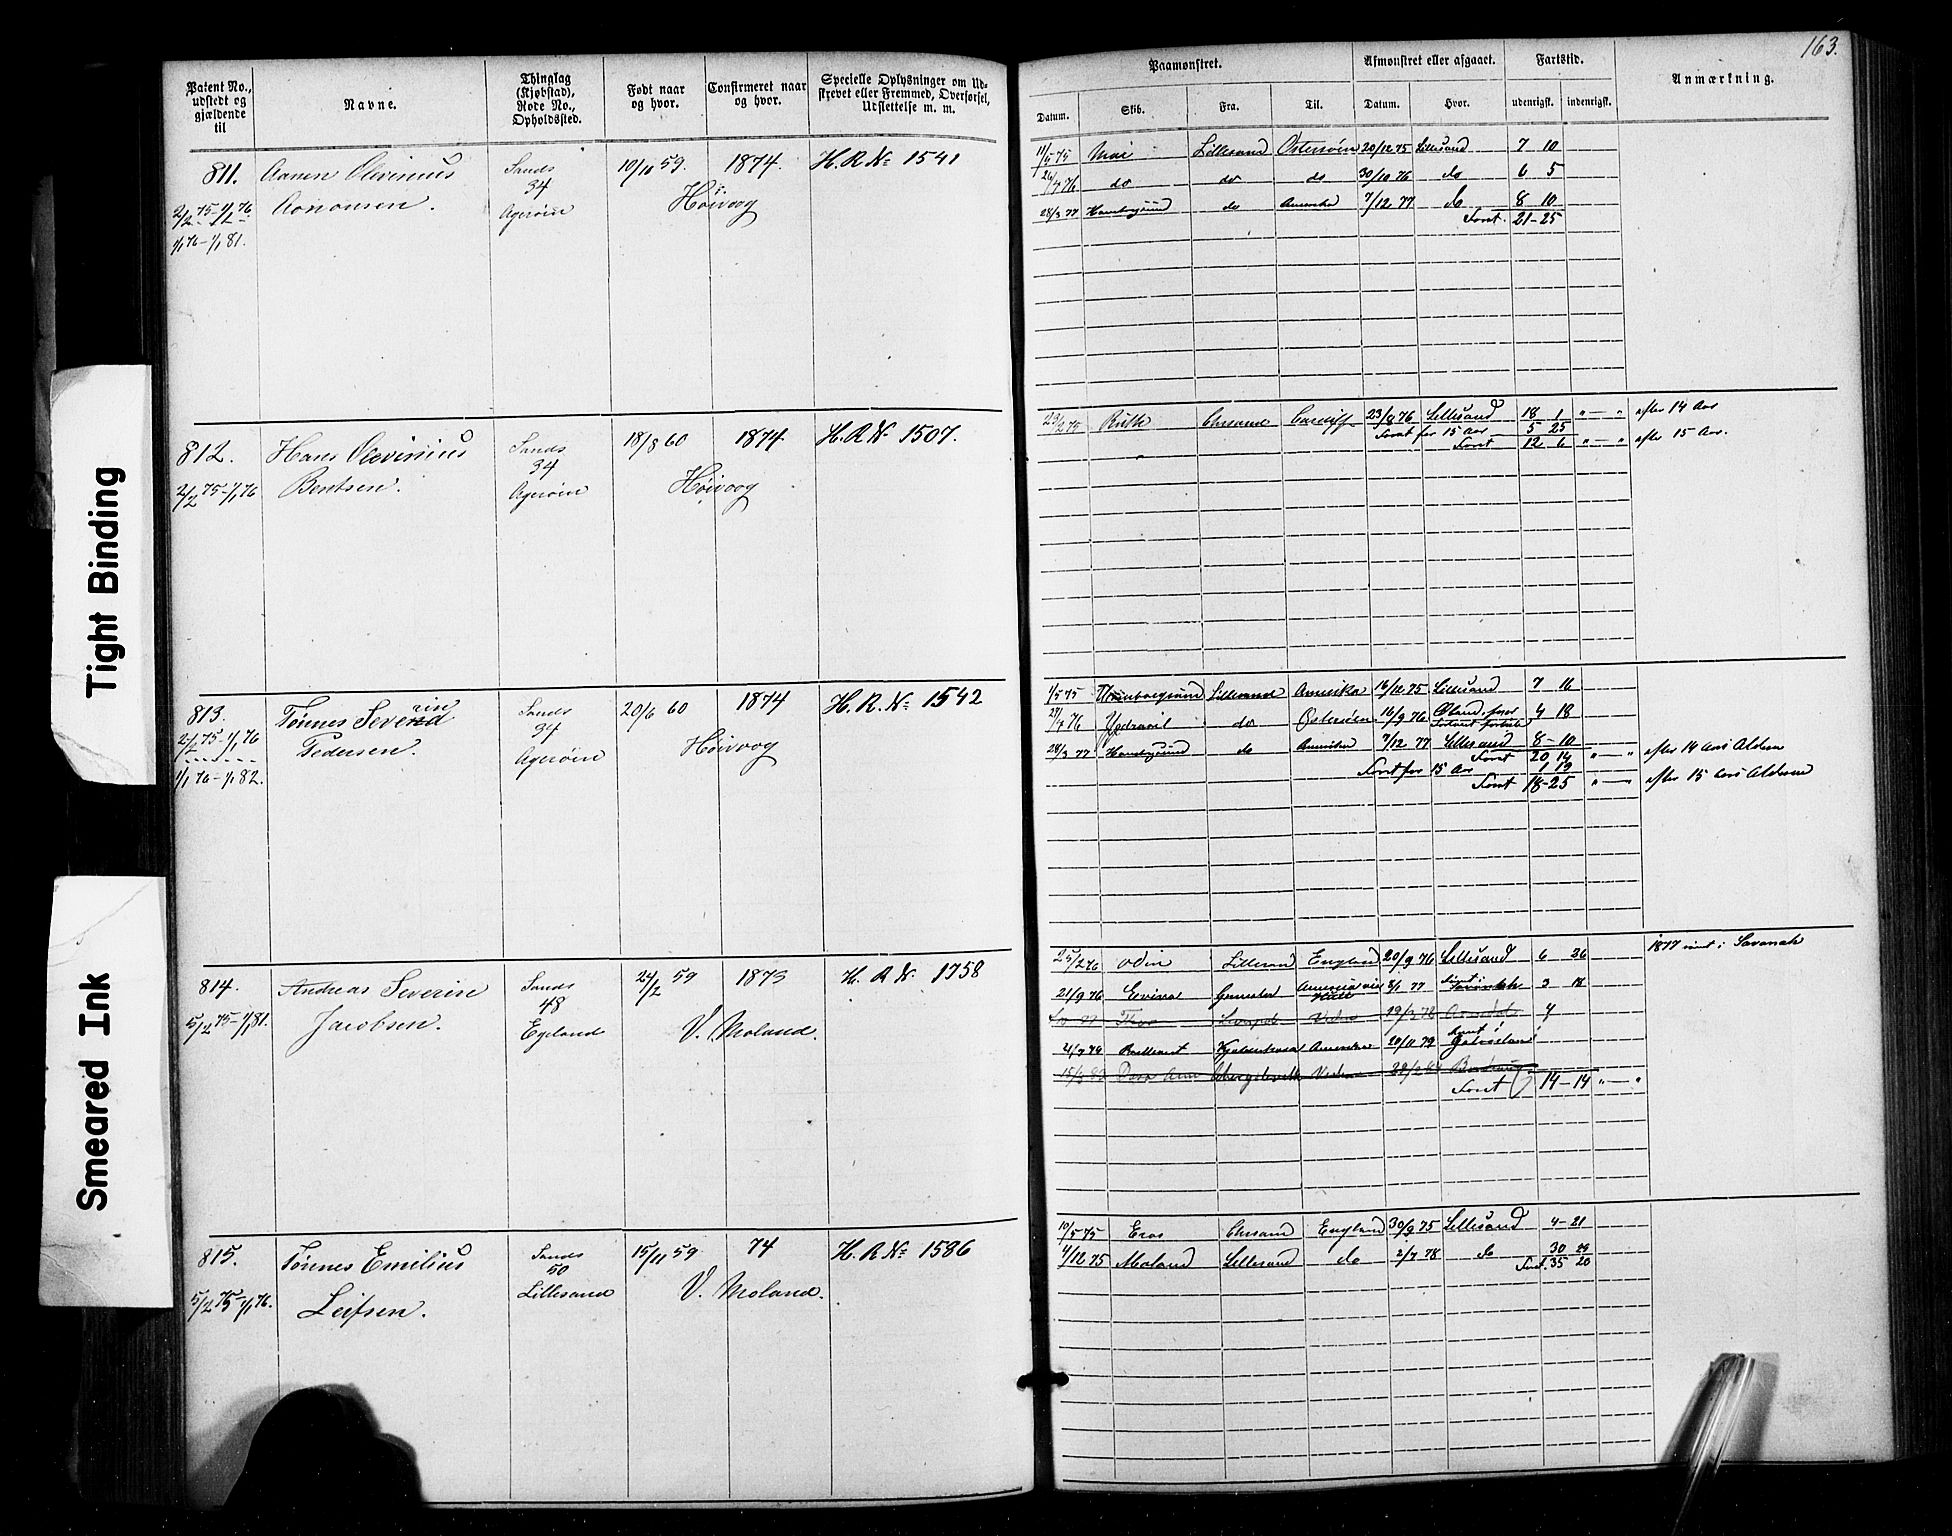 163.
Patent No., udstedt og gjældende til
Navne.
Thinglag (Kjøbstad), Rode No., Opholdssted.
Født naar og hvor.
Confirmeret naar og hvor.
Specielle Oplysninger om Udskrevet eller Fremmed, Overførsel, Udslettelse m. m.
Paamønstret.
Afmønstret eller afgaaet.
Fartstid.
Anmærkning.
Datum. Skib. Fra. Til. Datum. Hvor. udenrigsk. indenrigsk.
811. Aanen Olivinius Sands 10/10 59. 1874. H. R. No 1541
2/2 75 - 1/1 76 Aanonsen. 34 Høivaag
1/1 76 - 1/1 81. Agerøen
11/5 75 Mai Lillesand Østersøen 20/12 75 Lillesand 7 10
do do do 30/10 76 do 6 5
28/3 77 do Amerika 7/12 77 do 8 10
21-25
812. Hans Olevinius Sands 18/8 60 1874. H. R. N. 1507.
2/2 75 - 1/1 76 Bentsen. 34 Høivaag
Agerøen
23/2 75 Ruth Cardiff 23/8 76 Lillesand 18 1 " — " efter 14 Aar
for 15 Aar 5 25
12 6 " — " efter 15 Aar.
813. Tønnes Severin Sands 20/6 60 1874 H. R. No 1542
2/2 75 - 1/1 76 Pedersen. 34 Høivaag
1/1 76 - 1/1 82. Agerøen
1/5 75 Lillesand Amerika 16/12 75 Lillesand 7 16
do Østersøen 16/9 76 4 18
28/3 77 do Amerika 7/12 77 Lillesand 8-10
20 14 " — " efter 14 Aars Alderen
for 15 Aar 1 19
18-25 " — " efter 15 Aars Alderen
814. Andreas Severin Sands 24/2 59 1873 H. R. N. 1758
5/2 75 - 1/1 81. Jacobsen. 48 V. Moland.
Egeland
25/2 76 Odin Lillesand England 20/9 76 Lillesand 6 26 1877 rømt i Savanah
21/9 76 77 3
19/2 78 4
Amerika 20/11 79
14-14 " — "
815. Tønnes Emilius Sands 15/11 59 74 H. R. No 1586
5/2 75 - 1/1 76. Leifsen. 50 V. Moland.
Lillesand
10/5 75 Eros Chrsand England 30/9 75 Lillesand 4-21
4/12 75 Moland Lillesand do 2/7 78 do 30 29
35 20
Tight Binding
Smeared Ink